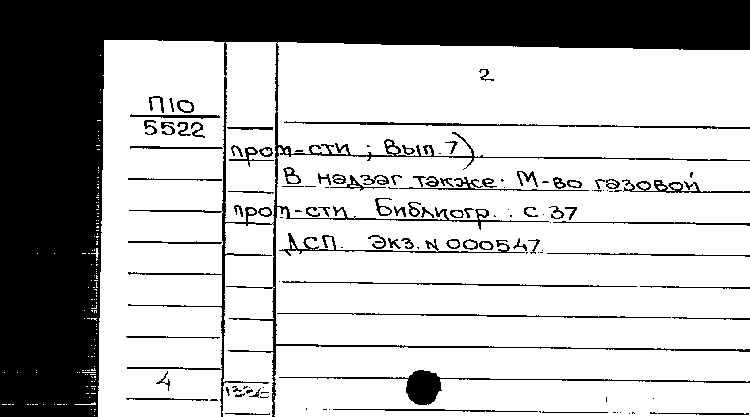 2
П10
5522
пром-сти ; Вып. 7).
В надзаг также: М-во газовой
пром-сти. Библиогр.: с. 37
ДСП. Экз. N 000547
4